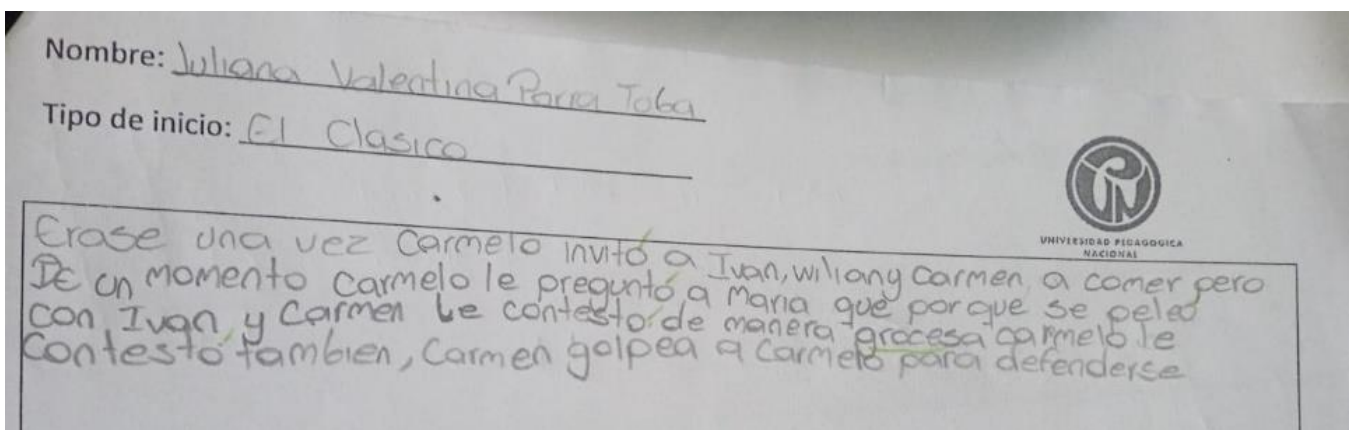 Nombre: Juliana Valentina Parra Toba
Tipo de inicio: El Clasico
UNIVERSIDAD PEDAGOGICA
NACIONAL
Erase una vez Carmelo invitó a Ivan, wiliany Carmen, a comer pero
De un momento Carmelo le preguntó a Maria que porque se peleó
con Ivan, y Carmen Le contestó de manera grocesa carmelo le
Contestó tambien, Carmen golpea a Carmelo para defenderse